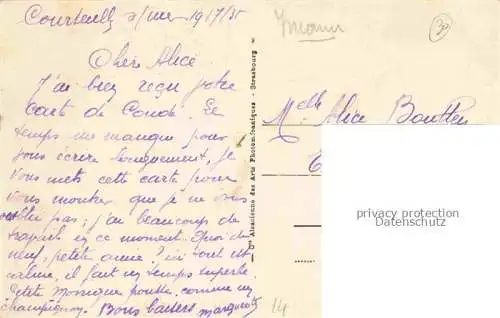 Courseulles s/mer 19/7/35
Chère Alice
J'ai bien reçu votre
carte de Condé. Le
temps me manque pour
vous écrire longuement, je
vous mets cette carte pour
vous montrer que je ne vous
oublie pas; j'ai beaucoup de
travail en ce moment. Quoi de
neuf, petite amie? ici tout est
calme, il fait un temps superbe.
Petite Monique pousse comme un
champignon. Bons baisers Marguerite
Cie Alsacienne des Arts Photomécaniques - Strasbourg
30
Melle Alice
privacy protection
Datenschutz
14